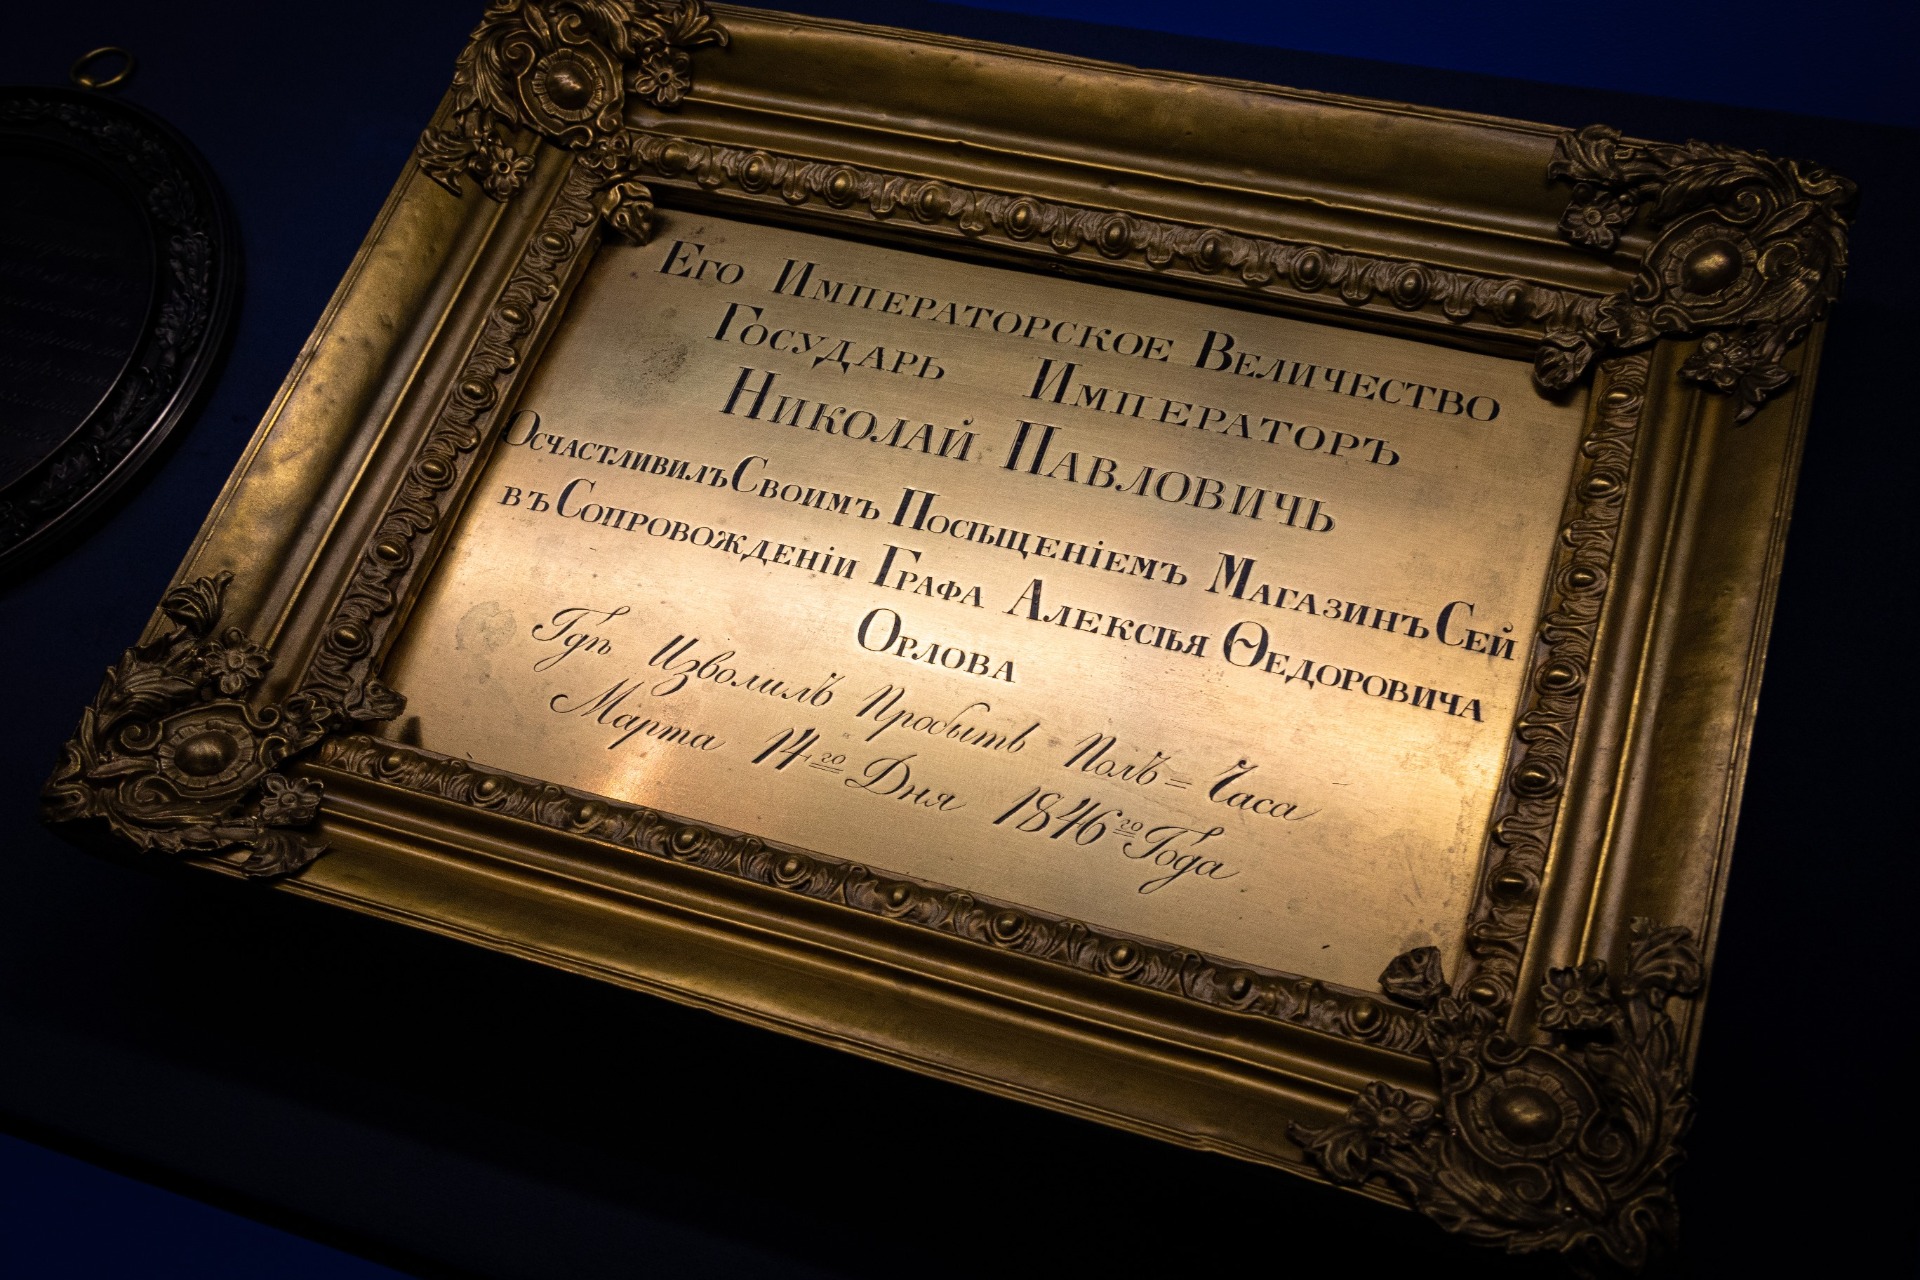 Его Императорское Величество
Государь Императоръ
Николай Павловичь
Осчастливилъ Своимъ Посѣщеніемъ Магазинъ Сей
въ Сопровожденіи Графа Алексѣя Ѳедоровича
Орлова
Гдѣ Изволилъ Пробыть Полъ = Часа
Марта 14го Дня 1846го Года